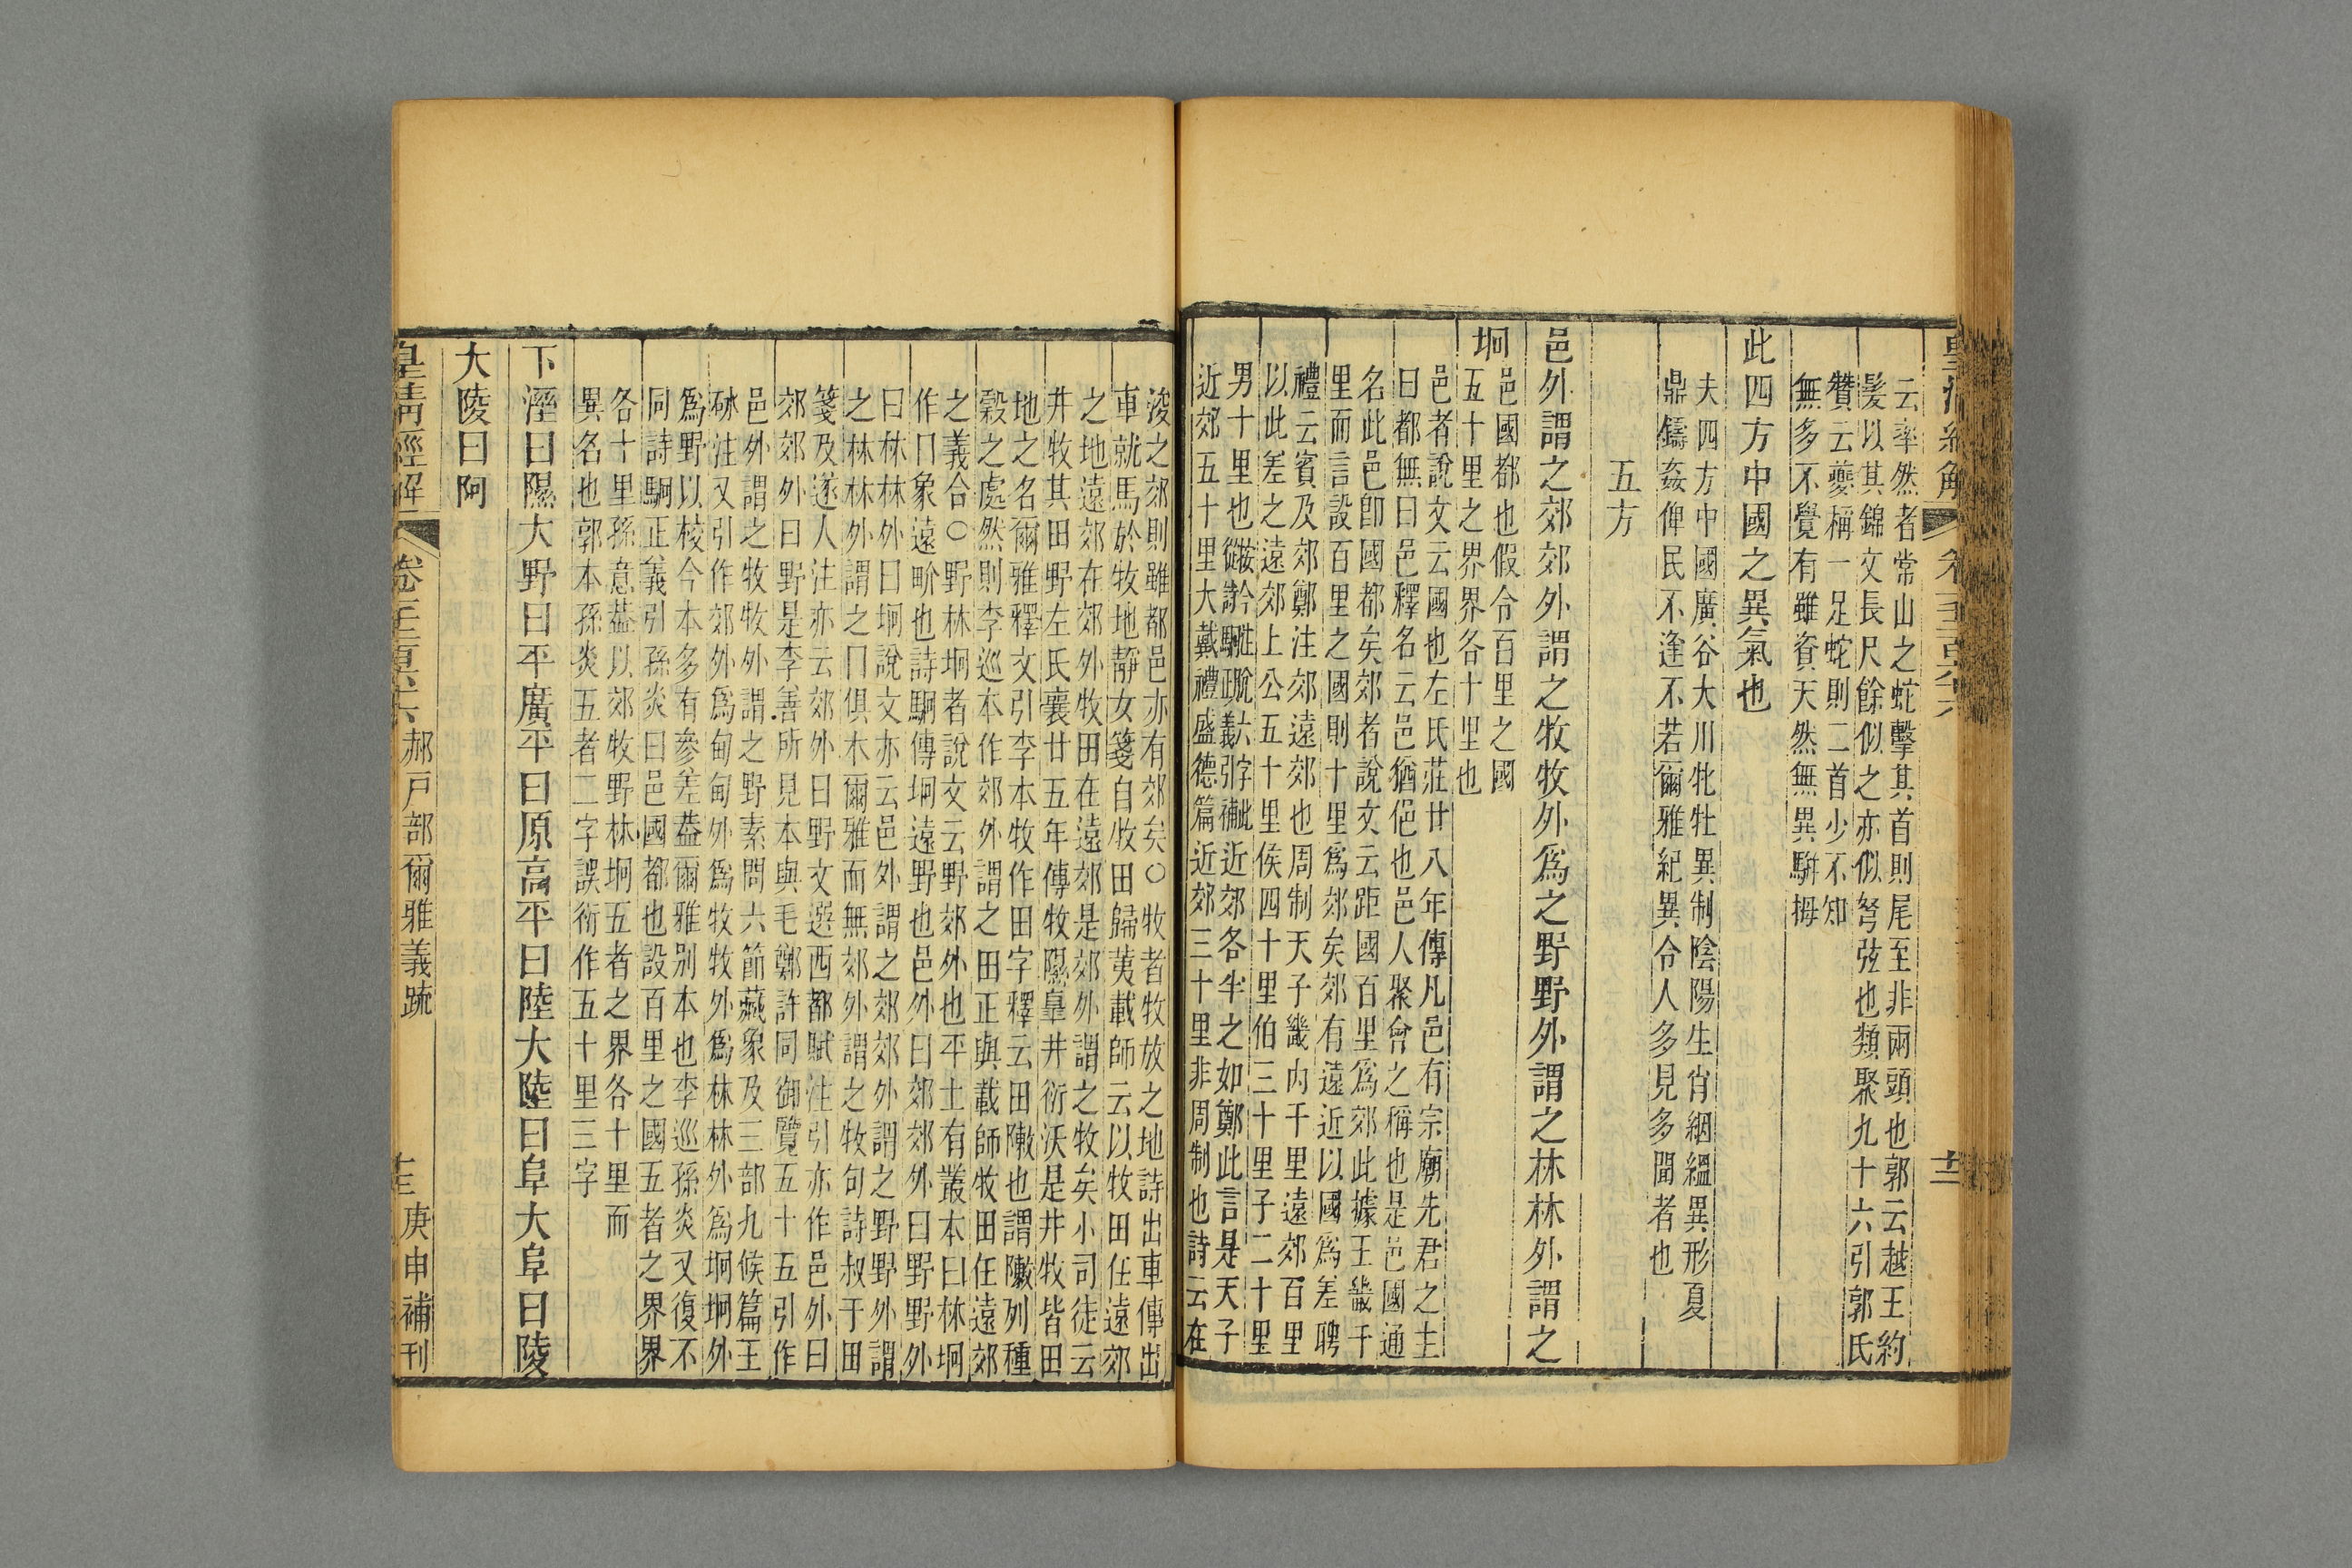 皇清經解
卷一千二百六十六
十二
云率然者常山之蛇擊其首則尾至非兩頭也郭云越王約
髮以其錦文長尺餘似之亦似弩弦也類聚九十六引郭氏
贊云夔稱一足蛇則二首少不知
無多不覺有雖資天然無異駢拇
此四方中國之異氣也
夫四方中國廣谷大川牝牡異制陰陽生肖絪縕異形夏
鼎鑄姦俾民不逢不若爾雅紀異令人多見多聞者也
五方
邑外謂之郊郊外謂之牧牧外爲之野野外謂之林林外謂之
坰
邑國都也假令百里之國
五十里之界界各十里也
邑者說文云國也左氏莊廿八年傳凡邑有宗廟先君之主
曰都無曰邑釋名云邑猶俋也邑人聚會之稱也是邑國通
名此邑卽國都矣郊者說文云距國百里爲郊此據王畿千
里而言設百里之國則十里爲郊矣郊有遠近以國爲差聘
禮云賓及郊鄭注郊遠郊也周制天子畿內千里遠郊百里
以此差之遠郊上公五十里侯四十里伯三十里子二十里
男十里也
近郊各半之如鄭此言是天子
近郊五十里大戴禮盛德篇近郊三十里非周制也詩云在
浚之郊則雖都邑亦有郊矣○牧者牧放之地詩出車傳出
車就馬於牧地靜女箋自牧田歸荑載師云以牧田任遠郊
之地遠郊在郊外牧田在遠郊是郊外謂之牧矣小司徒云
井牧其田野左氏襄廿五年傳牧隰皐井衍沃是井牧皆田
地之名爾雅釋文引李本牧作田字釋云田敶也謂敶列種
穀之處然則李巡本作郊外謂之田正與載師牧田任遠郊
之義合○野林坰者說文云野郊外也平土有叢木曰林坰
作冂象遠畍也詩駉傳坰遠野也邑外曰郊郊外曰野野外
曰林林外曰坰說文亦云邑外謂之郊郊外謂之野野外謂
之林林外謂之冂俱本爾雅而無郊外謂之牧句詩叔于田
箋及遂人注亦云郊外曰野文選西都賦注引亦作邑外曰
郊郊外曰野是李善所見本與毛鄭許同御覽五十五引作
邑外謂之牧牧外謂之野素問六節藏象及三部九候篇王
砅注又引作郊外爲甸甸外爲牧牧外爲林林外爲坰坰外
爲野以校今本多有參差葢爾雅別本也李巡孫炎又復不
同詩駉正義引孫炎曰邑國都也設百里之國五者之界界
各十里孫意葢以郊牧野林坰五者之界各十里而
異名也郭本孫炎五者二字誤衍作五十里三字
下溼曰隰大野曰平廣平曰原高平曰陸大陸曰阜大阜曰陵
大陵曰阿
皇清經解
卷一千二百六十六
郝戸部爾雅義疏
十三
庚申補刊